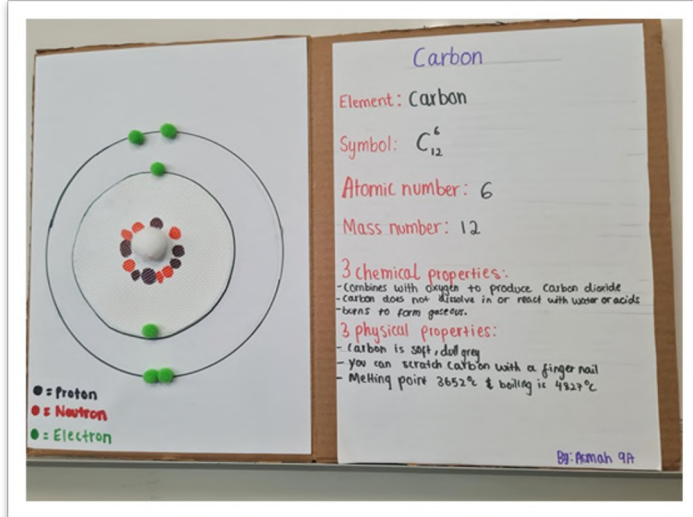 Carbon
Element: Carbon
Symbol: C 6 12
Atomic number: 6
Mass number: 12
3 chemical properties:
- Combines with oxygen to produce carbon dioxide
- carbon does not dissolve in or react with water or acids
- burns to form gaseous.
3 physical properties:
- Carbon is soft, dull grey
- you can scratch carbon with a finger nail
- Melting point 3652°c & boiling is 4827°c
= Proton
= Neutron
= Electron
By: Asmah 9A